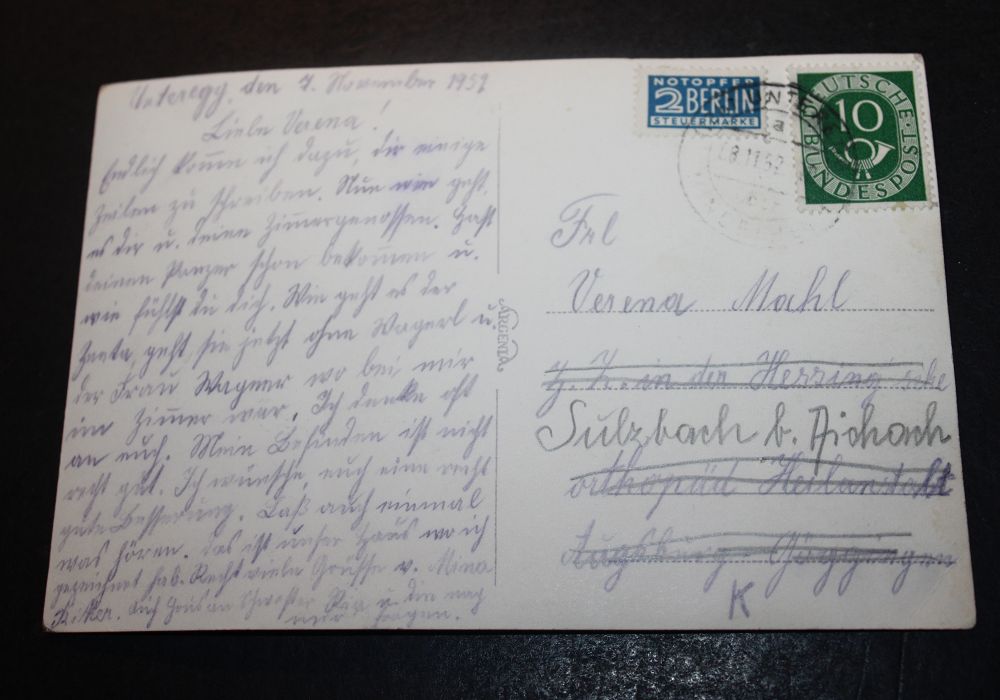 Unteregg, den 7. November 1952
Liebe Verena!
Endlich komme ich dazu, dir einige
Zeilen zu schreiben. Nun wie geht
es dir u. deine Zimmergenossen. Hast
deinen Panzer schon bekommen u.
wie fühlst du dich. Wie geht es der
geht sie jetzt ohne Wagerl u.
der Frau Wagner wo bei mir
im Zimmer war. Ich denke oft
an euch. Mein Befinden ist nicht
recht gut. Ich wünsche euch eine recht
gute Besserung. Laß auch einmal
was hören. Das ist unser Haus wo ich
gezeichnet hab. Recht viele Grüsse v. Mina
u.
NOTOPFER
2 BERLIN
STEUERMARKE
DEUTSCHE
10
BUNDESPOST
a
8.11.52
Frl
Verena Mahl
z. Z. in der Herzing'sche
Sulzbach b. Aichach
orthopäd Heilanstalt
Augsburg - Göggingen
K
ARGENTA